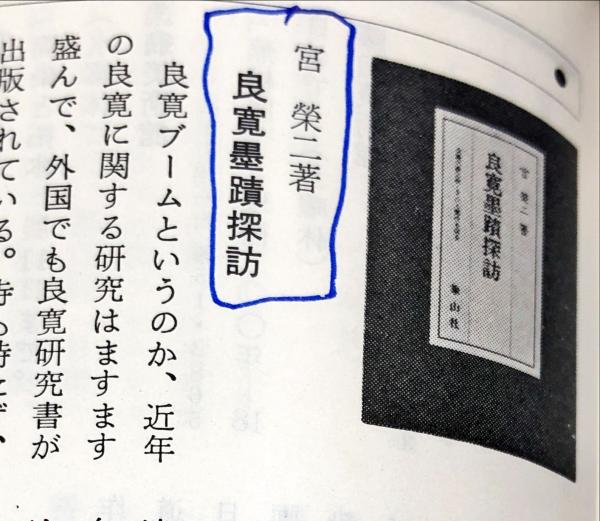 宮 榮二著
良寛墨蹟探訪
良寛ブームというのか、近年
の良寛に関する研究はますます
盛んで、外国でも良寛研究書が
出版されている。
宮 榮二 著
良寛墨蹟探訪
象山社